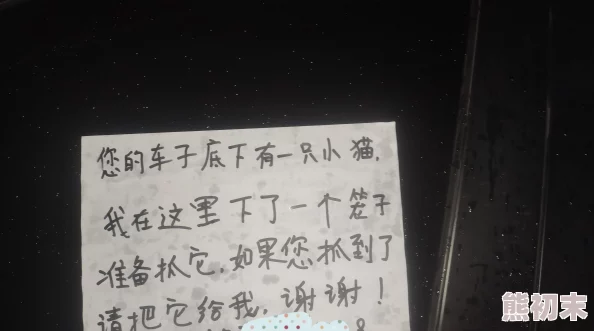 您的车子底下有一只小猫,
我在这里下了一个笼子
准备抓它,如果您抓到了
请把它给我,谢谢!
熊初末